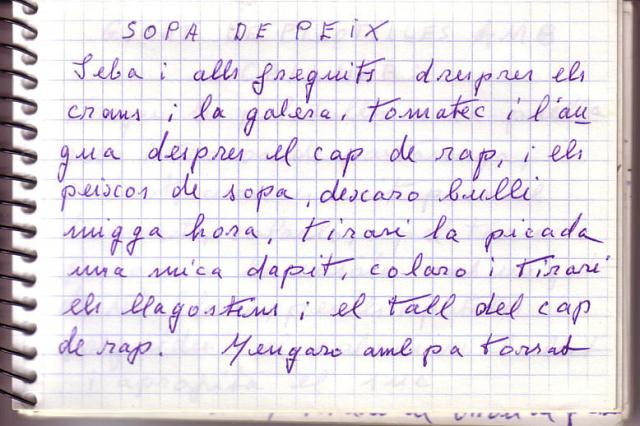 SOPA DE PEIX
Seba i alls fregits despres els
crans i la galera, tomatec i l'au
gua despres el cap de rap, i els
peixos de sopa, dexaro bulli
migga hora, tirari la picada
una mica dapit, colaro i tirari
els llagostins i el tall del cap
de rap. Mengaro amb pa torrat